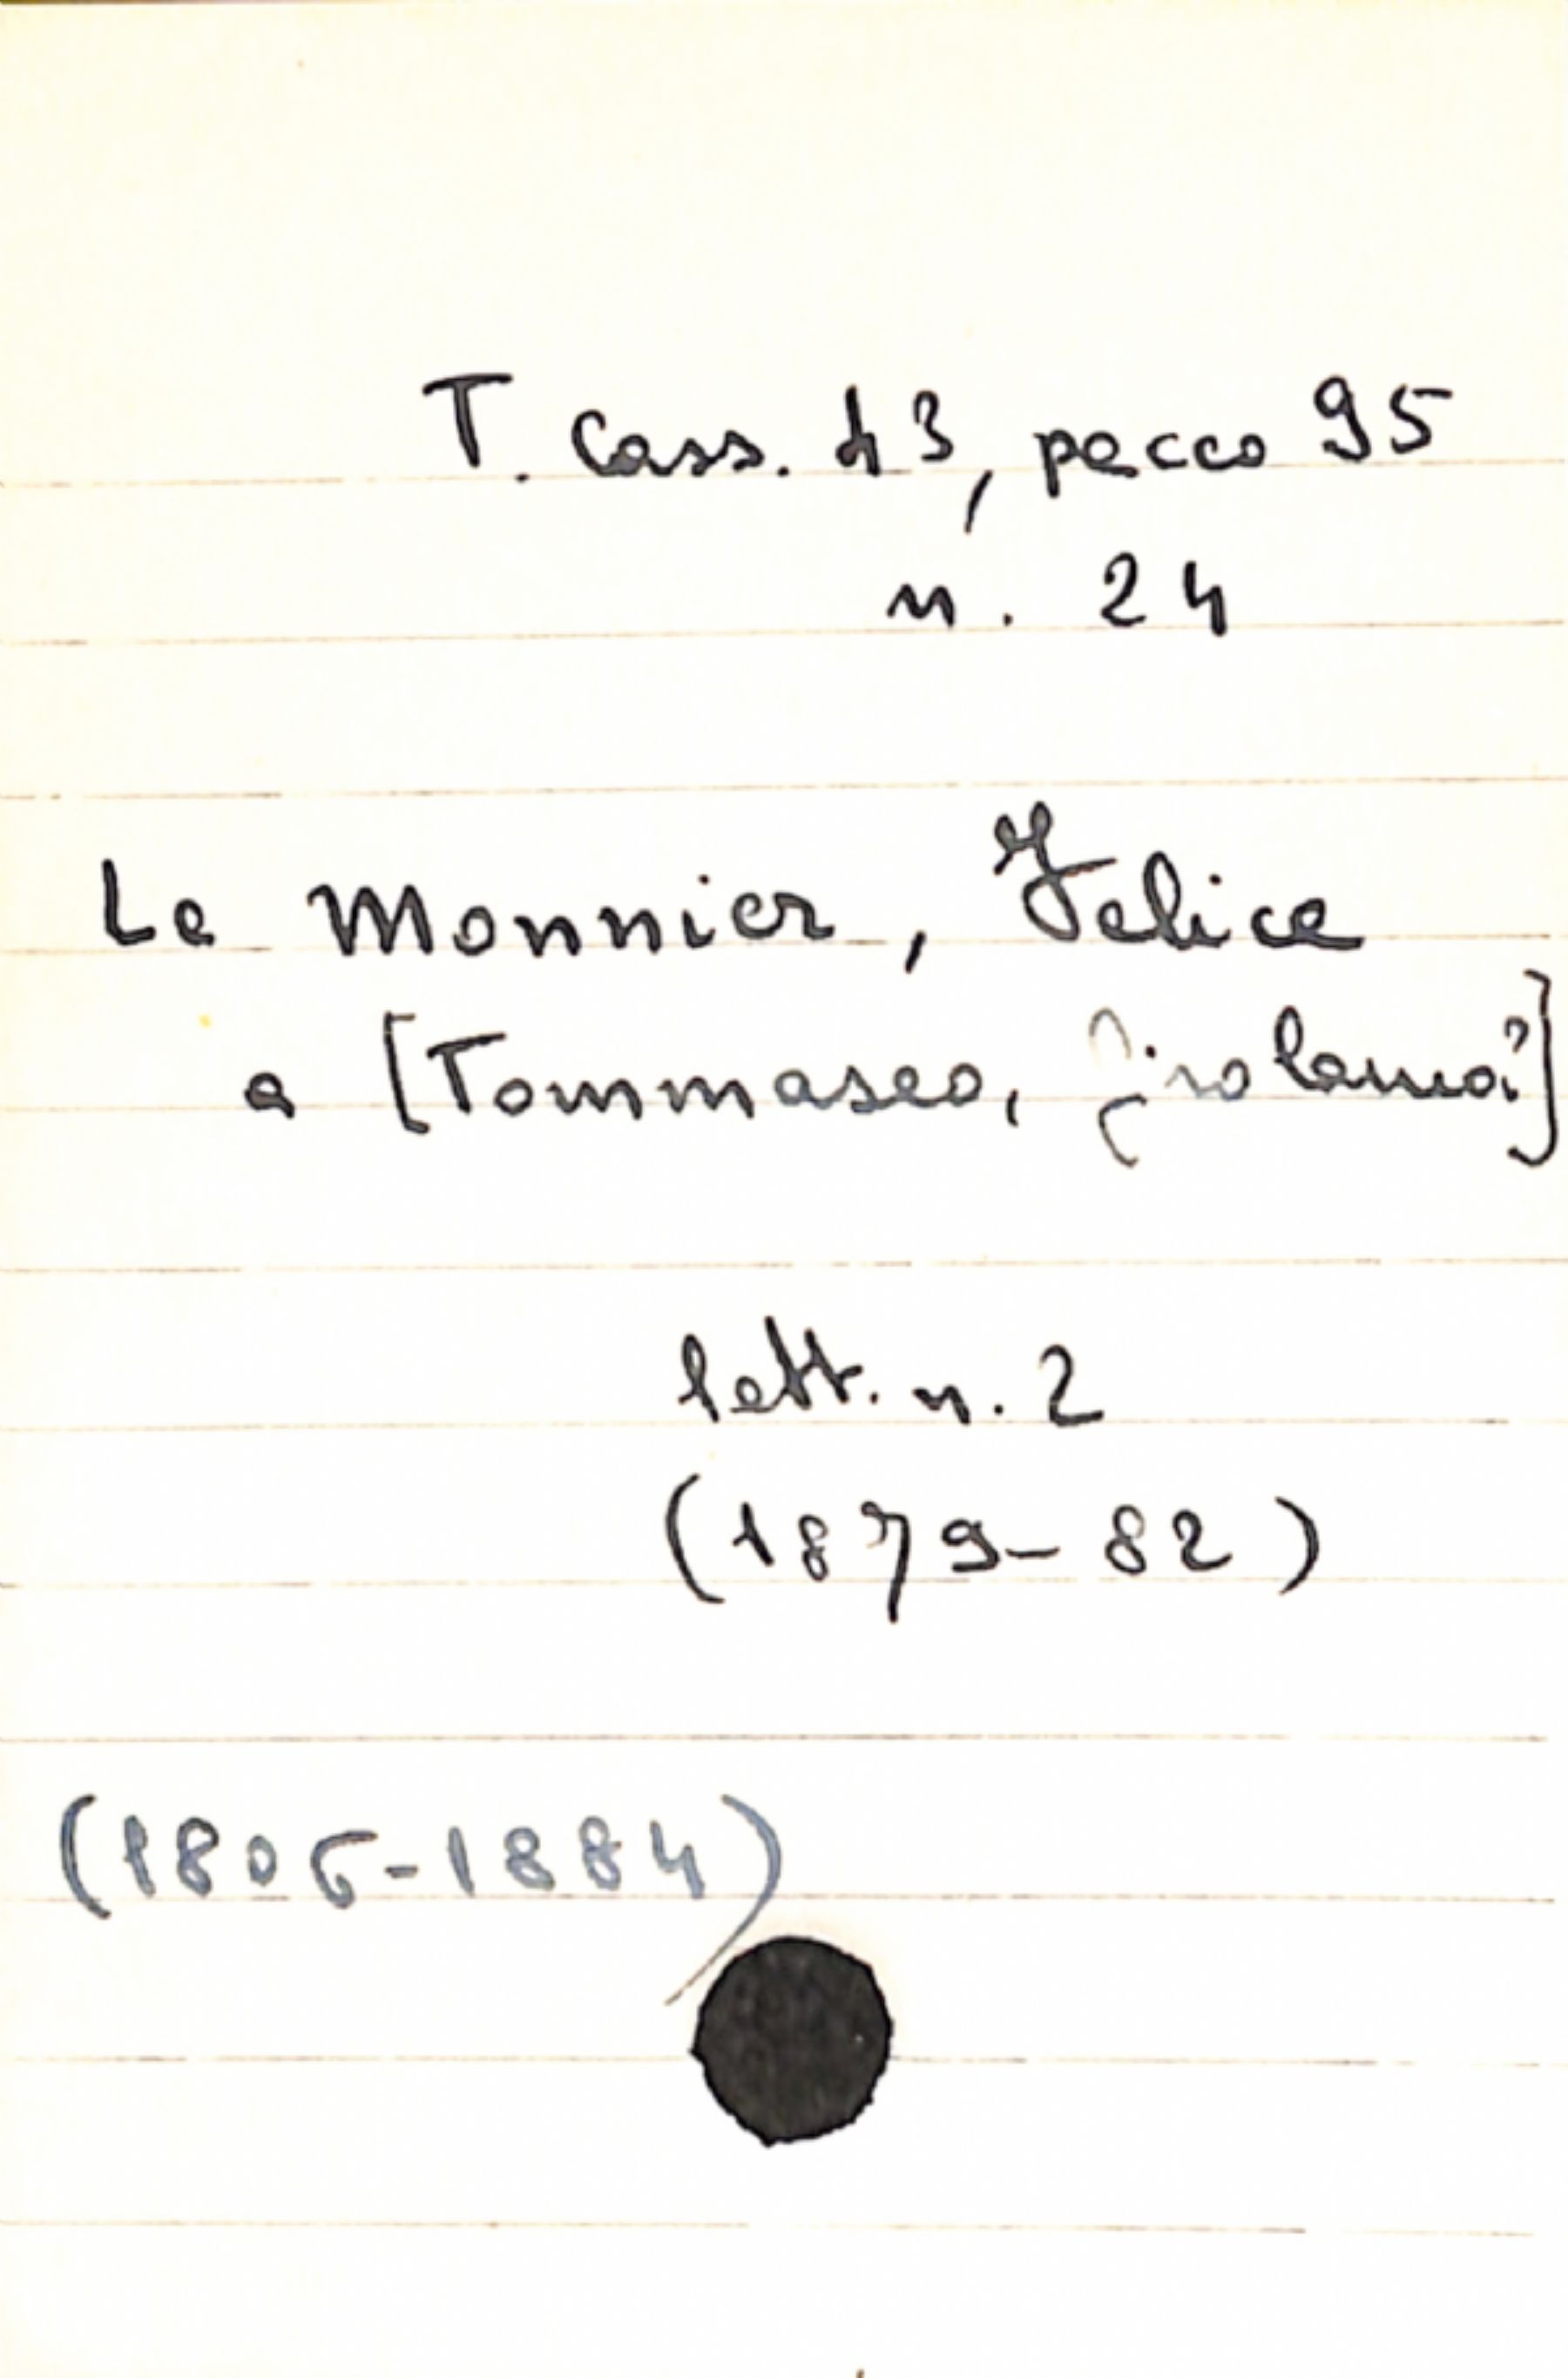 T. Cass. 43, pacco 95
n. 24
Le Monnier, Felice
a [Tommaseo, Girolamo?]
lett. n. 2
(1879-82)
(1806-1884)